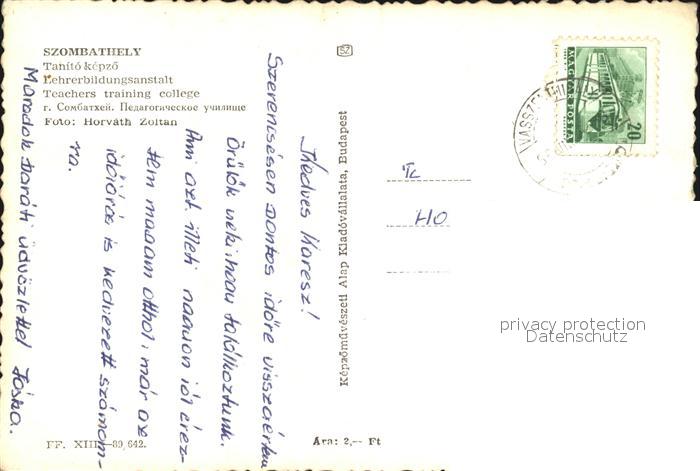 SZOMBATHELY
Tanító képző
Lehrerbildungsanstalt
Teachers training college
г. Сомбатхей. Педагогическое училище
Foto: Horváth Zoltán
SZ
MAGYAR POSTA
20
Kedves Karesz!
Szerencsésen pontos időre visszaértem
Örülök neki, hogy találkoztunk.
Ami azt illeti nagyon jól érez-
tem magam otthol, már az
időjárás is kedvezett számom-
ra.
Maradok baráti üdvözlettel Jóska.
Képzőművészeti Alap Kiadóvállalata, Budapest
HO
privacy protection
Datenschutz
FF. XIII—89,642.
Ára: 2,— Ft